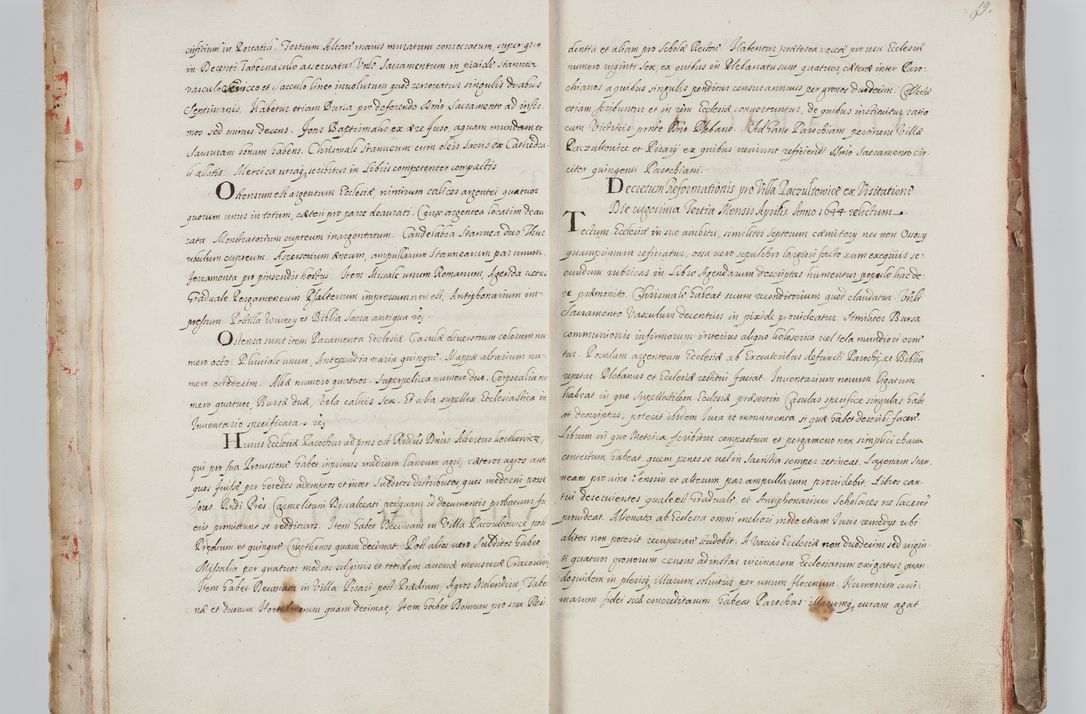 insidium in Portatili. Tertium Altare maius muratum consecratum, super quo
in Decenti Tabernaculo asservatur Vnle Sacramentum in pixide stannea
vasculo et sacculo lineo involutum quod renovatur singulis duabus
Septimanis. Habetur etiam Bursa pro deferendo Ssmo Sacramento ad infir
mos sed minus decens. Fons Baptismalis ex ære fuso, aquam mundam et
Saururam bonam habens. Chrismale Stanneum cum oleis Sacris ex Cathedra
li allatis. Metrica utraq, scribitur in Libris competenter compactis
Ostensum est argentum Ecclesiæ, nimirum calices argentei quatuor
quorum unus in totum, cæteri pro parte deaurati. Crux argentea locatim deau
rata. Monstratorium cupreum inargentatum. Candelabra Stannea duo Thur
ribulum cupreum. Aspersorium æneum, ampullarum Stannearum par unum.
Ferramenta pro pinsendis hostys. Item Missale unum Romanum, Agenda vetus
Graduale Pergameneum Psalterium impressum non est, Antiphonarium im-
pressum. Postilla Wuiecy et Biblia Sacra antiqua
Ostensa sunt item Paramenta Ecclesiæ Casulæ diversorum colorum nu
mero octo. Pluviale unum, Antependia varia quinque. Mappæ altarium nu-
mero octodecim. Albæ numero quatuor. Superpelicea numero duo. Corporalia nu
mero quatuor, Bursæ duæ, Vela calicis Sex. Et alia supellex Ecclesiastica in
Inventario specificata
Huius Ecclesiæ Parochus ad præns est Rndus Dnus Albertus
qui pro sua Provisione habet inprimis medium laneum agri, cæteros agros anti
quos fuisse per heredes ademptos et inter Subditos distributos quos moderni posse
sores Rndi Pres Carmelitani Discalceati postquam id documentis probatum fu
erit promittunt se reddituros. Item habet Decimam in Villa Paczultowice post
Prædium et quinque Cmethones quam decimat. Post alios vero Subditos habet
Missalia per quatuor modios siliginis et totidem avenæ mensuræ Cracovien
Item habet Decimam in Villa Pisari post Prædium, Agros Molendini Taber
næ et duorum Hortulanorum quam decimat. Item habet Domum pro sua Resi

19.
dentia et aliam pro Schola Rectore. Habentur præterea vaccæ pro usu Ecclesiæ
numero viginti Sex, ex quibus in Plebanatu sunt quatuor, cæteræ inter Paro-
chianos a quibus singulis penditur census annuus per grossos duodecim. Collectæ
etiam scribuntur et in rem Ecclesiæ convertuntur, de quibus instituitur ratio
cum Vitricis prnte Dno Plebano. Ad hanc Parochiam pertinent Villæ
Paczultowice et Pisary ex quibus veniunt reficiendi Ssmo Sacramento cir
citer quingenti Parochiani.
Decretum Reformationis pro Villa Paczultowice ex Visitatione
Die vigesima Tertia Mensis Aprilis Anno 1644 relictum
Tectum Ecclesiæ in suo ambitu, similiter Septorum cæmitery nec non Ossory
quamprimum reficiatur, ossa vero sepulchro largiori facto cum exequiis se-
cundum rubricas in Libro Agendarum descriptas humentur populo hac de
re præmonito. Chrismale habeat suum reconditorium quod claudatur. Vnli
Sacramento Vasculum decentius in pixide provideatur. Similiter Bursa
communionis infirmorum interius aliquo holoserico vel tela mundiori orne
tur. Poculum argenteum Ecclesiæ ab Executoribus defuncti Parochi, et Biblia
repetat Plebanus et Ecclesiæ restitui faciat. Inventarium novum ligatum
habeat in quo Supellectilem Ecclesiæ præsertim Casulas specifice singulas habe
at descriptas; poterit ibidem Iura et monumenta si quæ habet describi facere.
Librum in quo Metrica scribitur compactum et pergameno non simplici charta
contectum habeat quem penes se vel in Sacristia semper retineat. Lagenam Stan
neam pro vino et alterum par ampullarum providebit. Libros can-
tui deservientes quale est Graduale, et Antiphonarium Scholares ne lacerent
provideat. Alienata ab Ecclesia omni meliori modo etiam Iuris remedys ubi
aliter non poterit recuperare studebit. A vaccis Ecclesiæ non duodecim sed vigin-
ti quatuor grossorum census ad instar vicinarum Ecclesiarum exigatur quan
doquidem in plerisq illarum solvitur per unum florenum. Numerum ani-
marum fidei suæ concreditarum habeat Parochus illarumq, curam agat